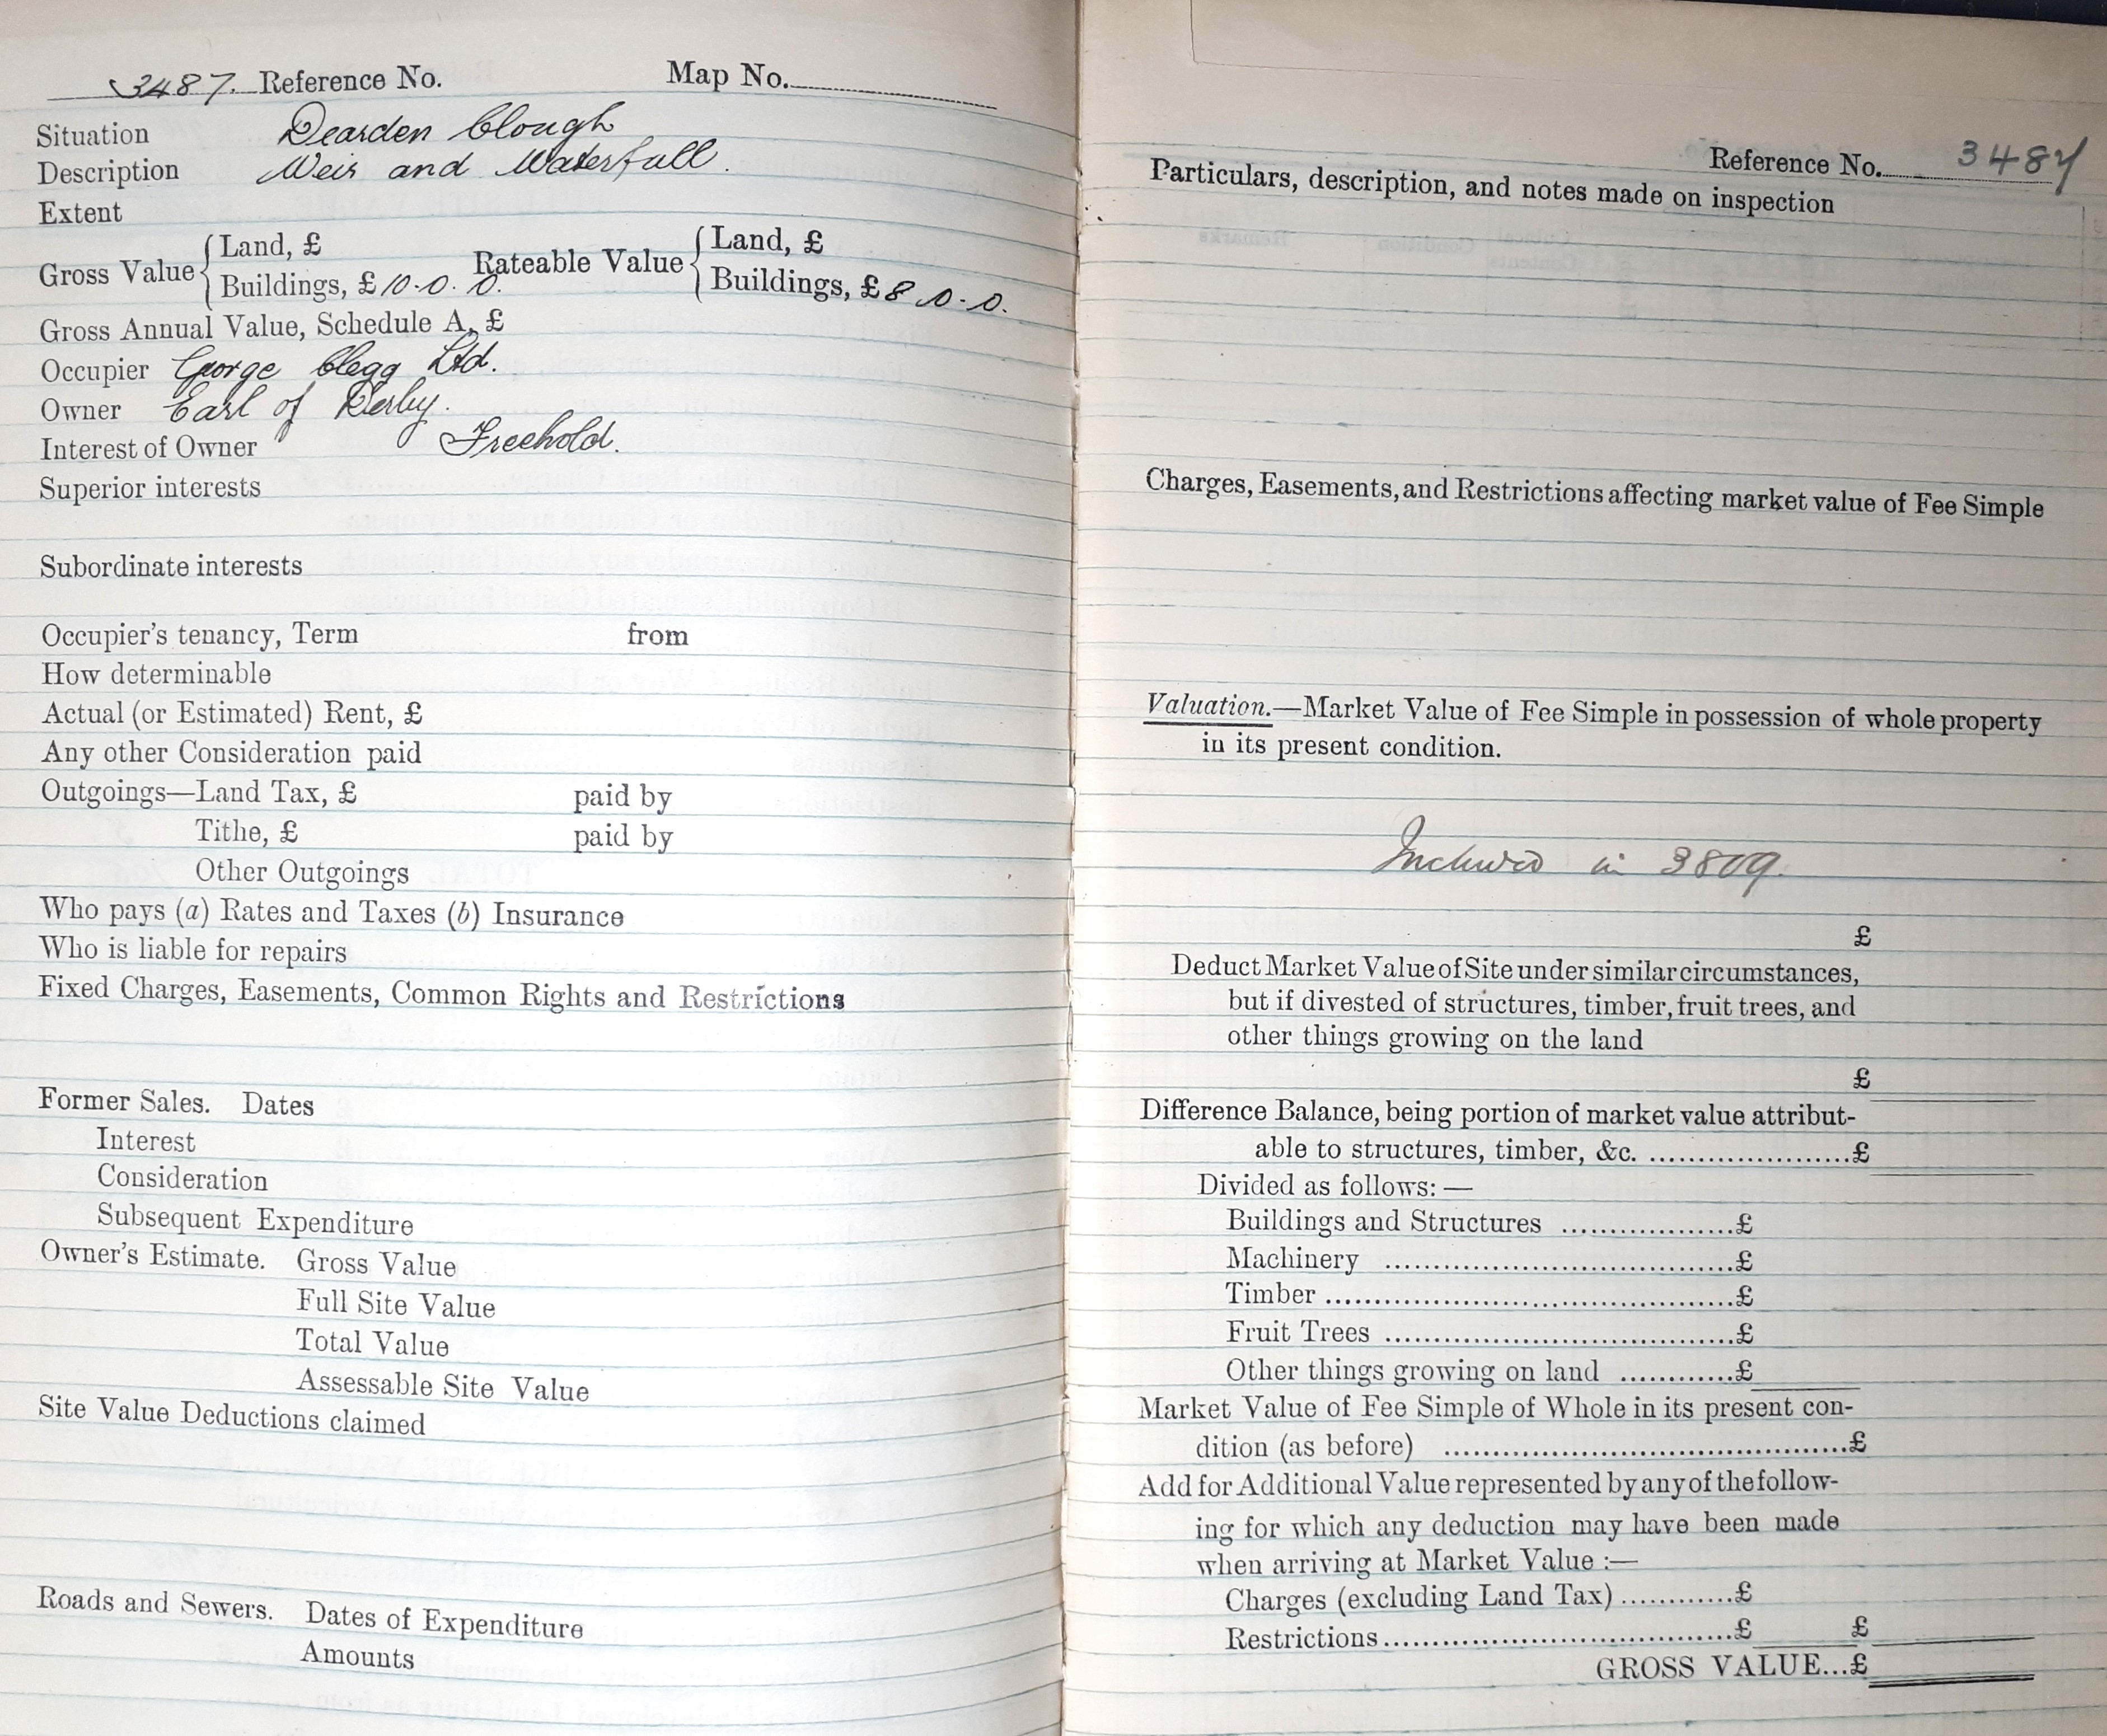 3487. Reference No. Map No.
Situation Dearden Clough
Description Weir and Waterfall.
Extent
Gross Value { Land, £ Rateable Value { Land, £
Buildings, £ 10.0.0. Buildings, £ 8.0.0.
Gross Annual Value, Schedule A, £
Occupier George Clegg Ltd.
Owner Earl of Derby.
Interest of Owner Freehold.
Superior interests
Subordinate interests
Occupier's tenancy, Term from
How determinable
Actual (or Estimated) Rent, £
Any other Consideration paid
Outgoings—Land Tax, £ paid by
Tithe, £ paid by
Other Outgoings
Who pays (a) Rates and Taxes (b) Insurance
Who is liable for repairs
Fixed Charges, Easements, Common Rights and Restrictions
Former Sales. Dates
Interest
Consideration
Subsequent Expenditure
Owner's Estimate. Gross Value
Full Site Value
Total Value
Assessable Site Value
Site Value Deductions claimed
Roads and Sewers. Dates of Expenditure
Amounts
Reference No. 3487
Particulars, description, and notes made on inspection
Charges, Easements, and Restrictions affecting market value of Fee Simple
Valuation.—Market Value of Fee Simple in possession of whole property
in its present condition.
Included in 3809.
£
Deduct Market Value of Site under similar circumstances,
but if divested of structures, timber, fruit trees, and
other things growing on the land
£
Difference Balance, being portion of market value attribut-
able to structures, timber, &c. ......................£
Divided as follows:—
Buildings and Structures .................£
Machinery ..................................£
Timber ........................................£
Fruit Trees ..................................£
Other things growing on land ............£
Market Value of Fee Simple of Whole in its present con-
dition (as before) .......................................£
Add for Additional Value represented by any of the follow-
ing for which any deduction may have been made
when arriving at Market Value :—
Charges (excluding Land Tax) ............£
Restrictions ..................................£ £
GROSS VALUE...£